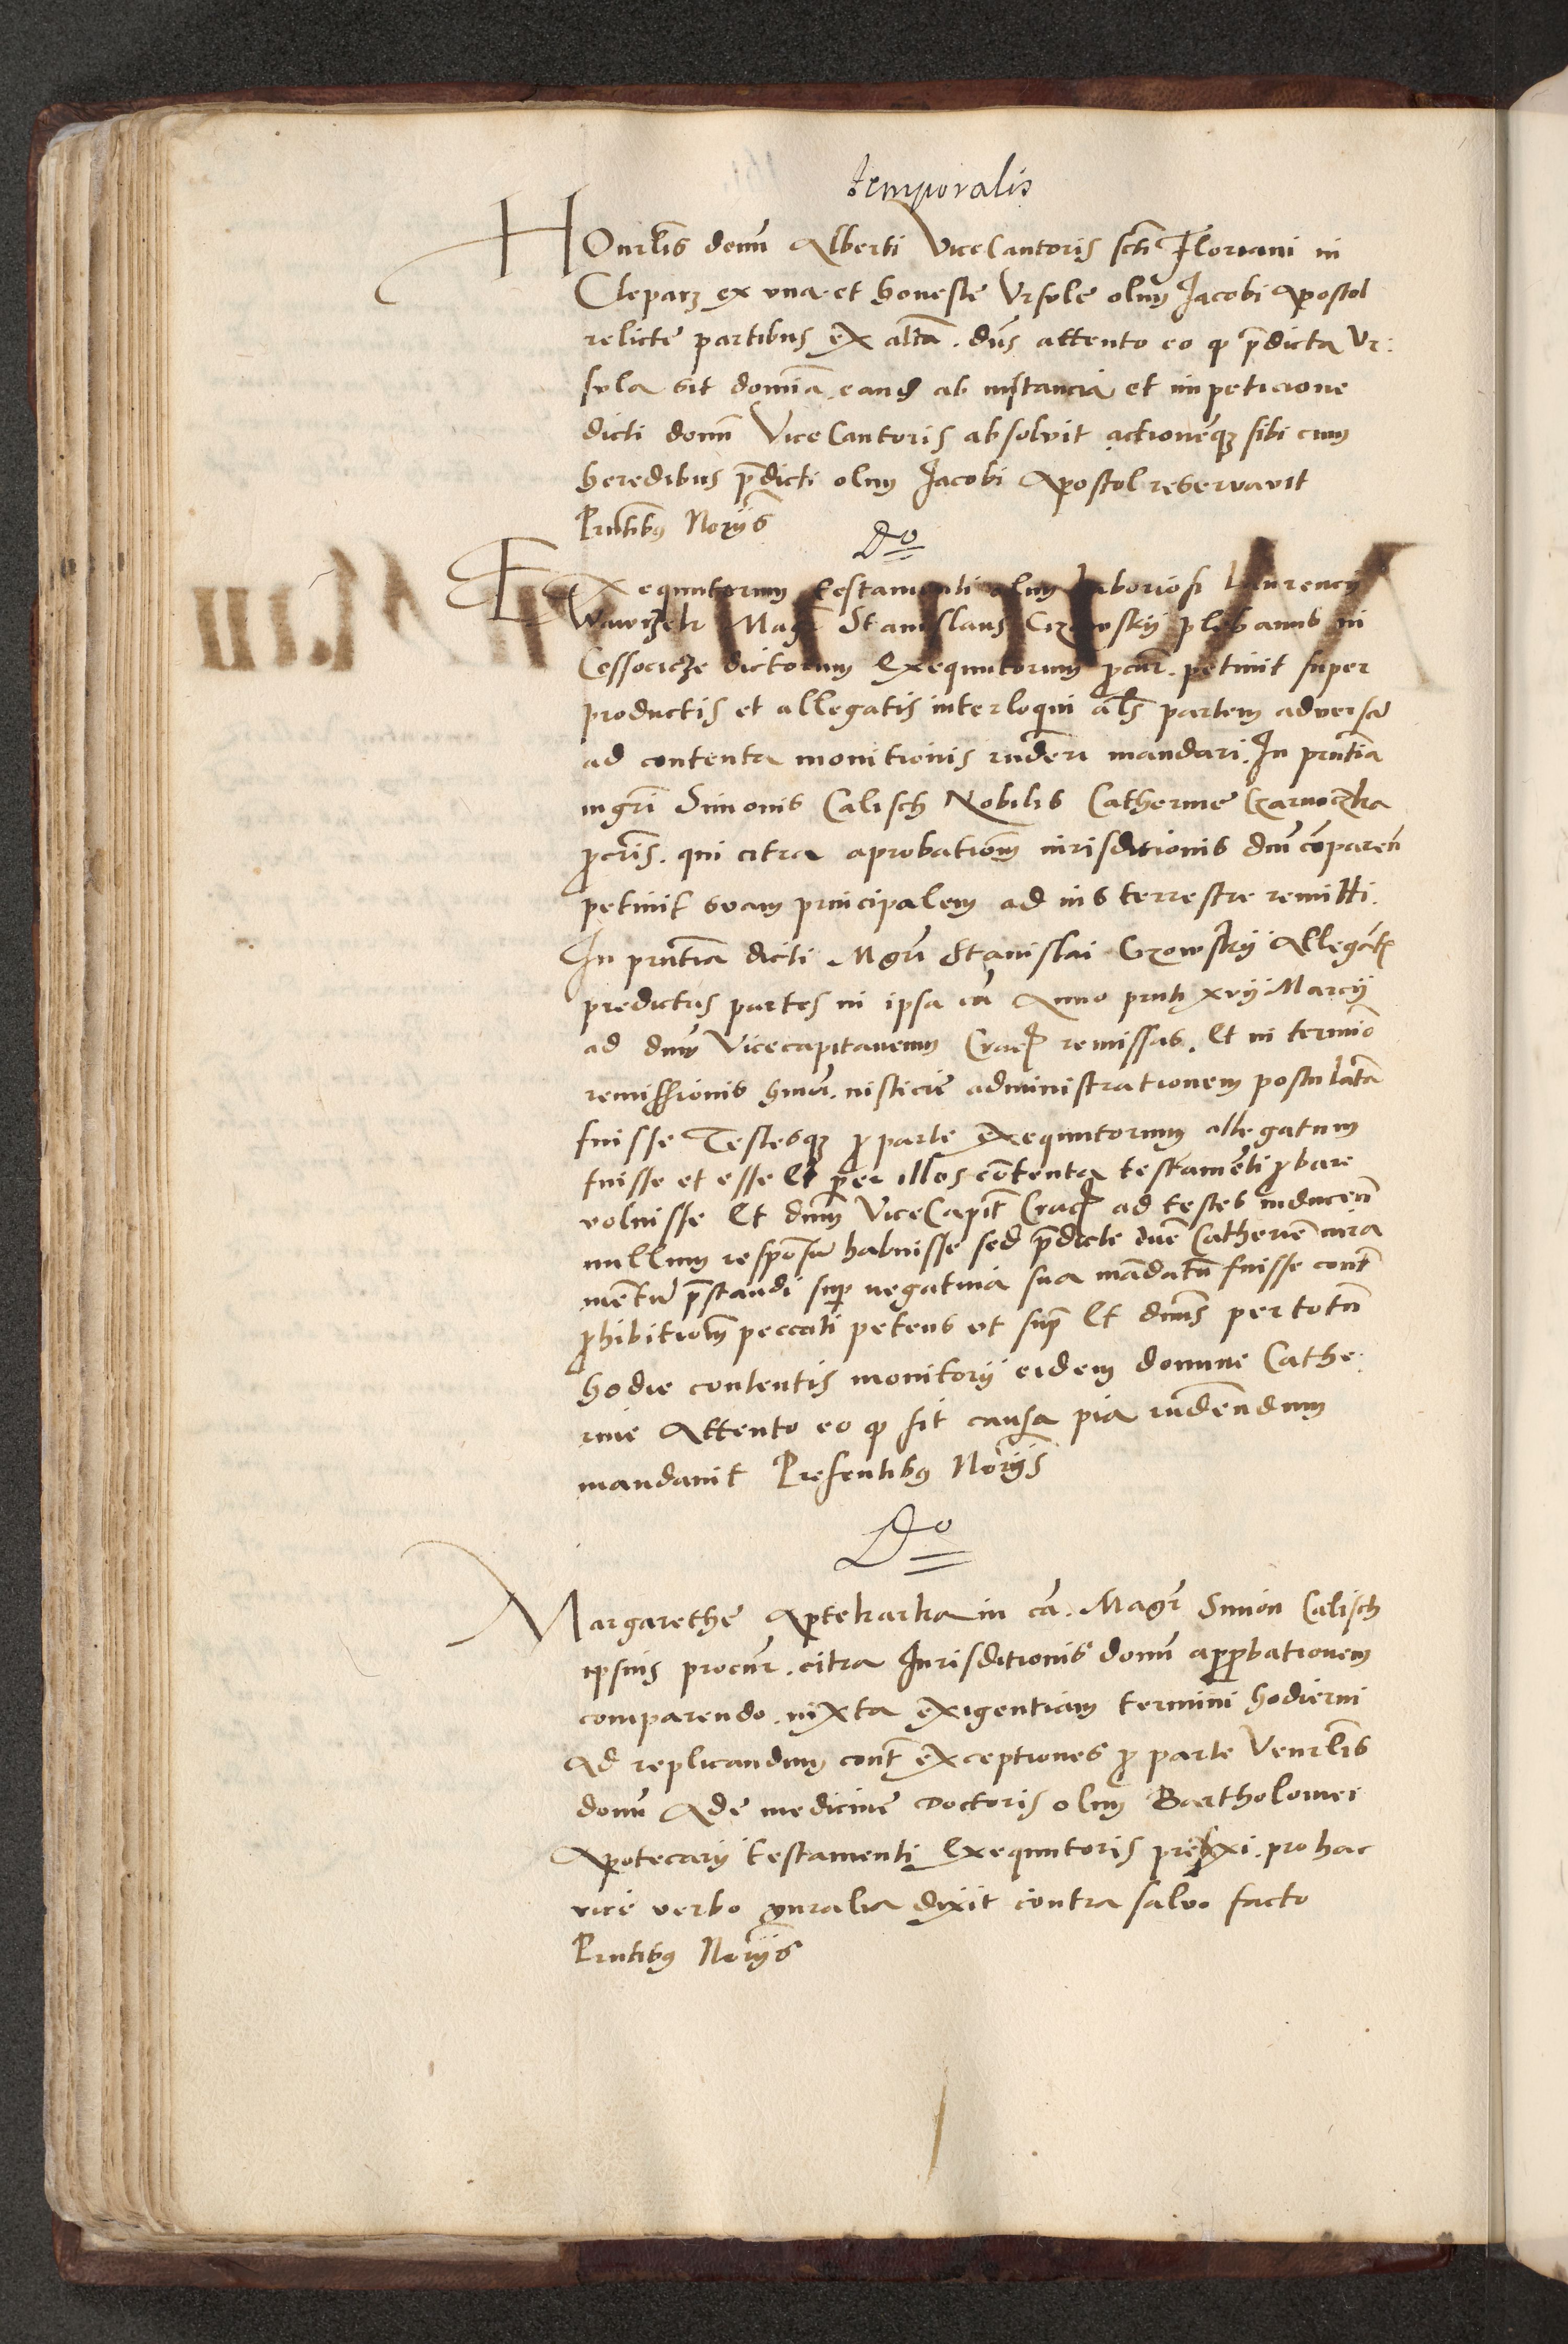 temporalis
HOnrlis domi Alberti ViceCantoris scti Floriani in
Cleparz ex vna et honeste Vrsule olim Jacobi Apostol
relicte partibus ex altera. dns attento eo q predicta Vr:
sula sit domina eand ab instancia et impeticione
dicti domi ViceCantoris absolvit actionemq sibi cum
heredibus predicti olim Jacobi Apostol reservavit
Prntibus Noriis
Do
Exequutorum testamenti olim laboriosi Laurencij
Wawrzek Magr Stanislaus plebanus in
dictorum Exequutorum procur. petiuit super
productis et allegatis interloqui als partem adversam
ad contenta monitionis rnderi mandari. In prntia
mgri Simonis Calisch Nobilis Catherine
procris. qui citra aprobationem iurisditionis dni comparen
petiuit eam principalem ad ius terrestre remitti.
In prntia dicti Mgri Stanislai Allegat
predictas partes in ipsa ca Anno prnti xvij Marcij
ad dnum Vicecapitaneum Crac remissas. Et in termino
remissionis hmoi. iusticie administrationem postulatam
fuisse Testesq pro parte exequutorum allegatum
fuisse et esse Et per illos contenta testamenti probare
voluisse Et dnum ViceCapit Crac ad testes inducen
nullum responsum habuisse sed predicte dne Catherine iura
mentum prestandi super negatiua sua mandatum fuisse cont
prohibitionem peccati petens ut supra Et dnus per totam
hodie contentis monitorij eidem domine Cathe:
rine Attento eo q sit causa pia rndendum
mandauit Presentibus Noriis
Do
Margarethe Aptekarka in ca. Magr Simon Calisch
ipsius procur. citra Jurisditionis domi approbationem
comparendo. iuxta exigentiam termini hodierni
Ad replicandum cont exceptiones pro parte Venrlis
domi Ade medicine doctoris olim Bartholomei
Apotecarij testamenti Exequutoris prefixi. pro hac
vice verbo gnralia dixit contra salvo facto
Prntibus Noriis